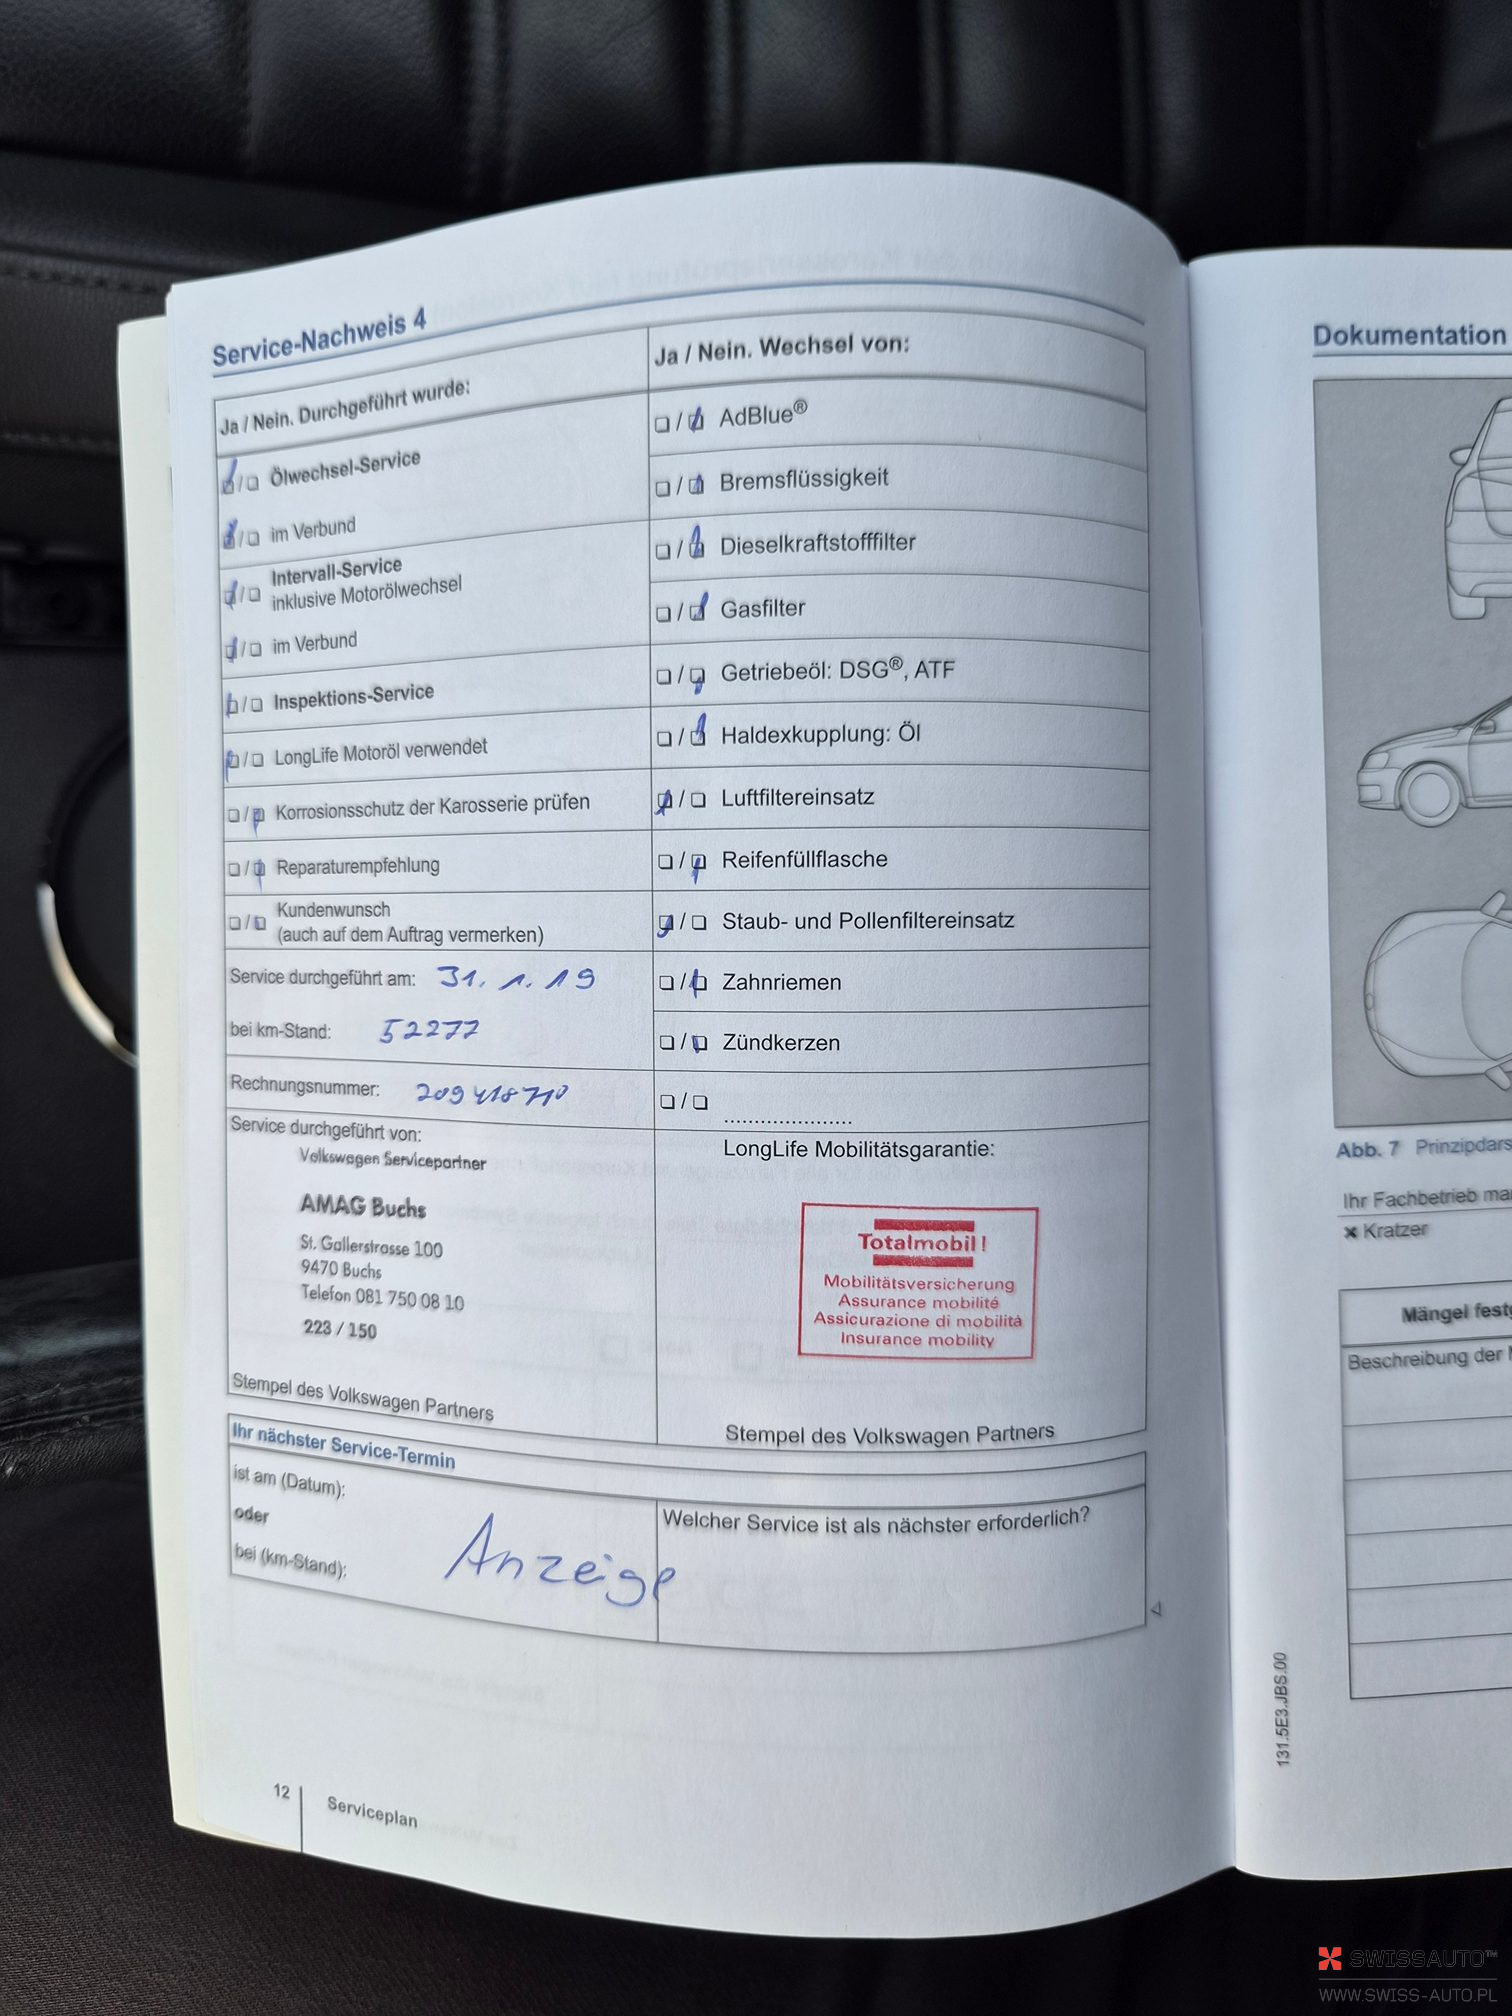 Service-Nachweis 4
Ja / Nein. Durchgeführt wurde:
Ölwechsel-Service
im Verbund
Intervall-Service
inklusive Motorölwechsel
im Verbund
Inspektions-Service
LongLife Motoröl verwendet
Korrosionsschutz der Karosserie prüfen
Reparaturempfehlung
Kundenwunsch
(auch auf dem Auftrag vermerken)
Service durchgeführt am: 31. 1. 19
bei km-Stand: 52277
Rechnungsnummer: 209418710
Service durchgeführt von:
Volkswagen Servicepartner
AMAG Buchs
St. Gallerstrasse 100
9470 Buchs
Telefon 081 750 08 10
223 / 150
Stempel des Volkswagen Partners
Ja / Nein. Wechsel von:
AdBlue®
Bremsflüssigkeit
Dieselkraftstofffilter
Gasfilter
Getriebeöl: DSG®, ATF
Haldexkupplung: Öl
Luftfiltereinsatz
Reifenfüllflasche
Staub- und Pollenfiltereinsatz
Zahnriemen
Zündkerzen
LongLife Mobilitätsgarantie:
Totalmobil!
Mobilitätsversicherung
Assurance mobilité
Assicurazione di mobilità
Insurance mobility
Stempel des Volkswagen Partners
Ihr nächster Service-Termin
ist am (Datum):
oder
bei (km-Stand):
Anzeige
Welcher Service ist als nächster erforderlich?
12
Serviceplan
Dokumentation
Abb. 7 Prinzipdars
Ihr Fachbetrieb mar
Kratzer
Mängel festg
Beschreibung der
131.5E3.JBS.00
SWISSAUTO™
WWW.SWISS-AUTO.PL